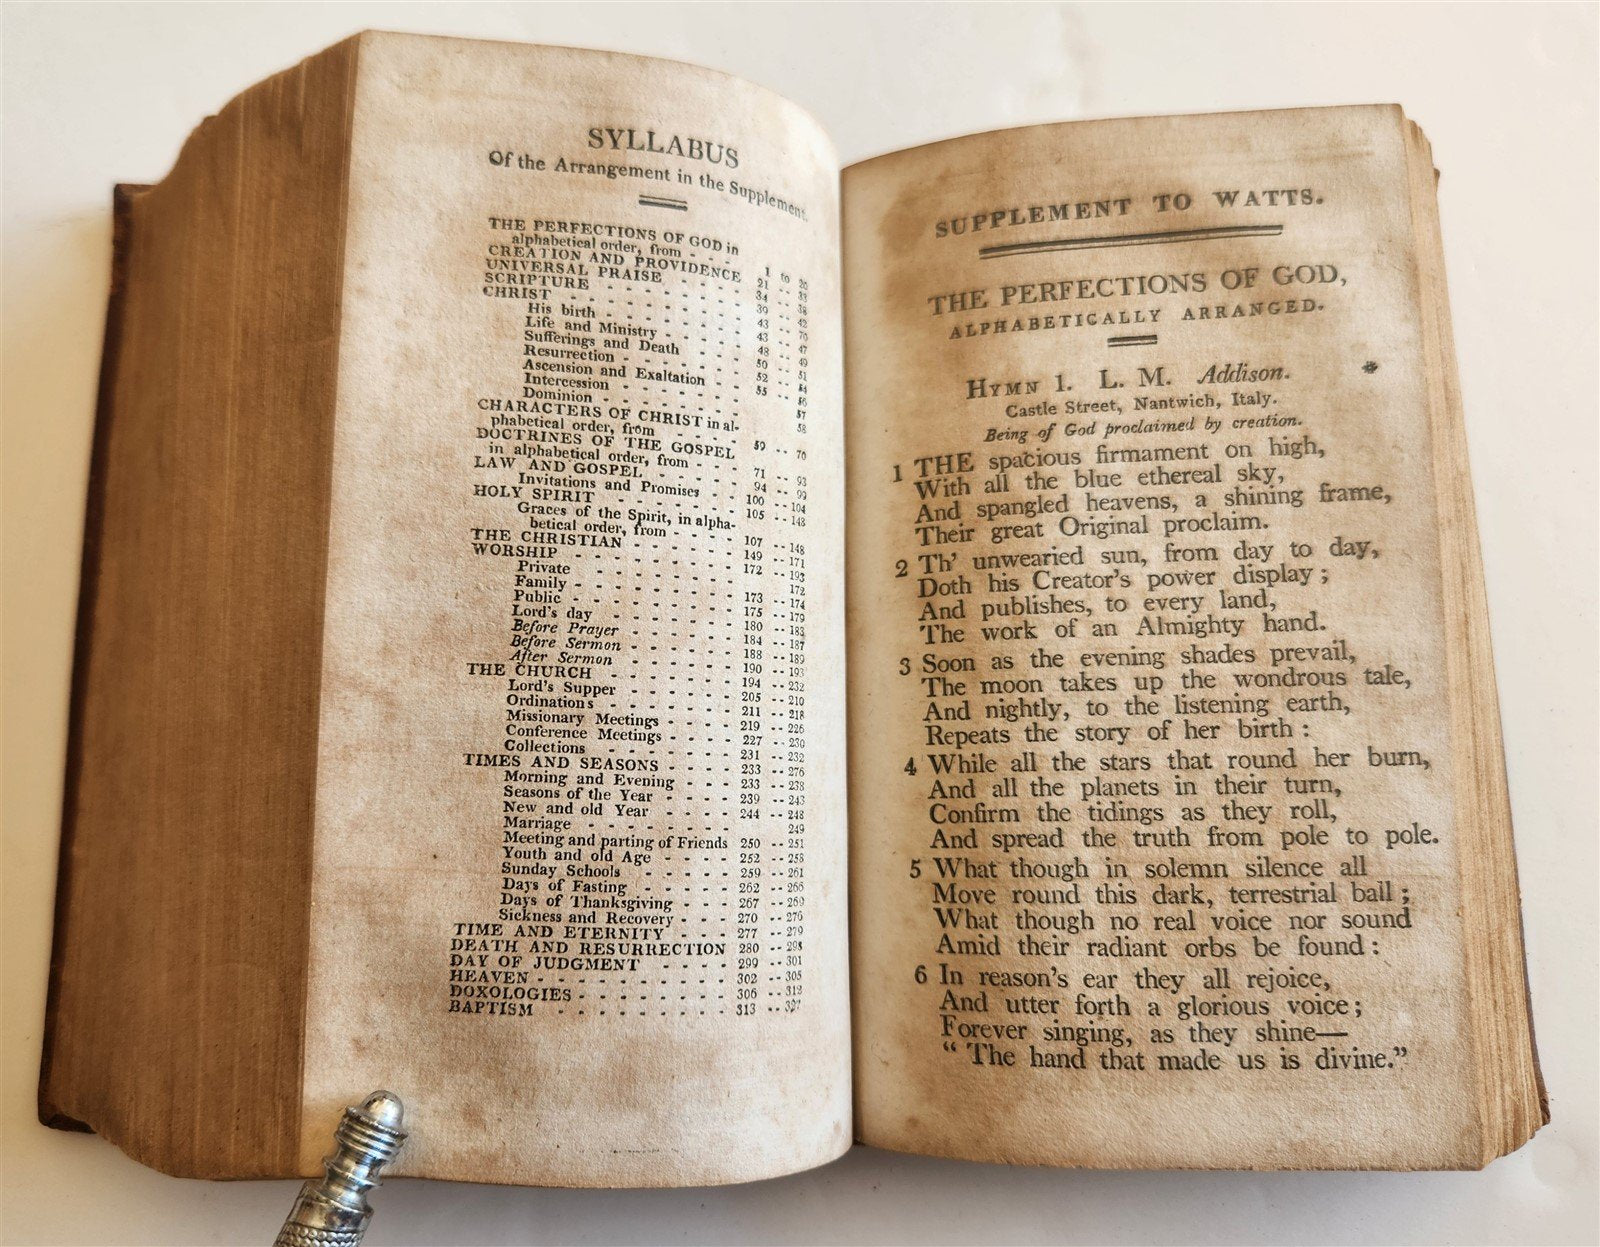 SYLLABUS
Of the Arrangement in the Supplement.
THE PERFECTIONS OF GOD in
alphabetical order, from - - - 1 to 20
CREATION AND PROVIDENCE 21 - - 33
UNIVERSAL PRAISE - - - - 34 - - 38
SCRIPTURE - - - - - - - 39 - - 42
CHRIST - - - - - - - - 43 - - 70
His birth - - - - - - - 43 - - 47
Life and Ministry - - - - 48 - - 49
Sufferings and Death - - - 50 - - 51
Resurrection - - - - - - 52 - - 54
Ascension and Exaltation - - 55 - - 56
Intercession - - - - - - 57
Dominion - - - - - - - 58
CHARACTERS OF CHRIST in al-
phabetical order, from - - - - 59 - - 70
DOCTRINES OF THE GOSPEL
in alphabetical order, from - - - 71 - - 93
LAW AND GOSPEL - - - - - 94 - - 99
Invitations and Promises - - 100 - - 104
HOLY SPIRIT - - - - - - 105 - - 148
Graces of the Spirit, in alpha-
betical order, from - - - - 107 - - 148
THE CHRISTIAN - - - - - 149 - - 171
WORSHIP - - - - - - - 172 - - 193
Private - - - - - - - 172
Family - - - - - - - - 173 - - 174
Public - - - - - - - - 175 - - 179
Lord's day - - - - - - 180 - - 183
Before Prayer - - - - - 184 - - 187
Before Sermon - - - - - 188 - - 189
After Sermon - - - - - 190 - - 193
THE CHURCH - - - - - - 194 - - 232
Lord's Supper - - - - - 205 - - 210
Ordinations - - - - - - 211 - - 218
Missionary Meetings - - - - 219 - - 226
Conference Meetings - - - - 227 - - 230
Collections - - - - - - 231 - - 232
TIMES AND SEASONS - - - - 233 - - 276
Morning and Evening - - - - 233 - - 238
Seasons of the Year - - - - 239 - - 243
New and old Year - - - - 244 - - 248
Marriage - - - - - - - 249
Meeting and parting of Friends 250 - - 251
Youth and old Age - - - - 252 - - 258
Sunday Schools - - - - - 259 - - 261
Days of Fasting - - - - - 262 - - 266
Days of Thanksgiving - - - 267 - - 269
Sickness and Recovery - - - 270 - - 276
TIME AND ETERNITY - - - 277 - - 279
DEATH AND RESURRECTION 280 - - 298
DAY OF JUDGMENT - - - - 299 - - 301
HEAVEN - - - - - - - - 302 - - 305
DOXOLOGIES - - - - - - - 306 - - 312
BAPTISM - - - - - - - - 313 - - 327
SUPPLEMENT TO WATTS.
THE PERFECTIONS OF GOD,
ALPHABETICALLY ARRANGED.
HYMN 1. L. M. Addison. *
Castle Street, Nantwich, Italy.
Being of God proclaimed by creation.
1 THE spacious firmament on high,
With all the blue ethereal sky,
And spangled heavens, a shining frame,
Their great Original proclaim.
2 Th' unwearied sun, from day to day,
Doth his Creator's power display ;
And publishes, to every land,
The work of an Almighty hand.
3 Soon as the evening shades prevail,
The moon takes up the wondrous tale,
And nightly, to the listening earth,
Repeats the story of her birth :
4 While all the stars that round her burn,
And all the planets in their turn,
Confirm the tidings as they roll,
And spread the truth from pole to pole.
5 What though in solemn silence all
Move round this dark, terrestrial ball ;
What though no real voice nor sound
Amid their radiant orbs be found :
6 In reason's ear they all rejoice,
And utter forth a glorious voice ;
Forever singing, as they shine—
“ The hand that made us is divine.”